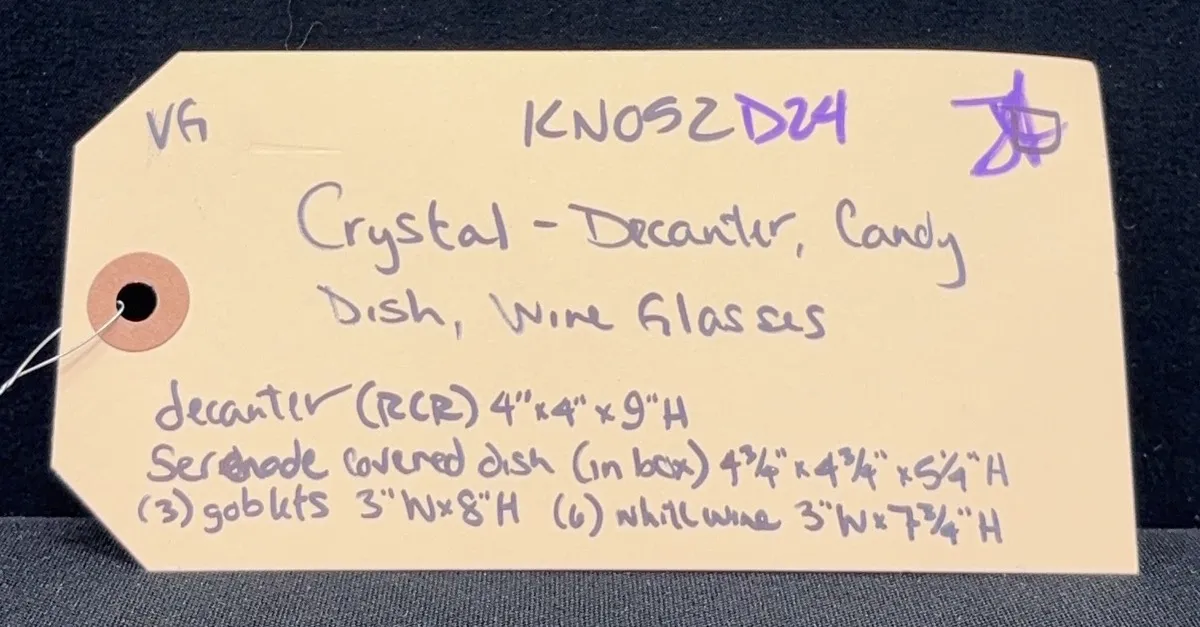 VG KN052 D24
Crystal - Decanter, Candy
Dish, Wine Glasses
decanter (RCR) 4"x4" x 9"H
Serenade covered dish (in box) 4¾" x 4¾" x 5¼" H
(3) goblets 3"W x 8"H (6) white wine 3"W x 7¾" H